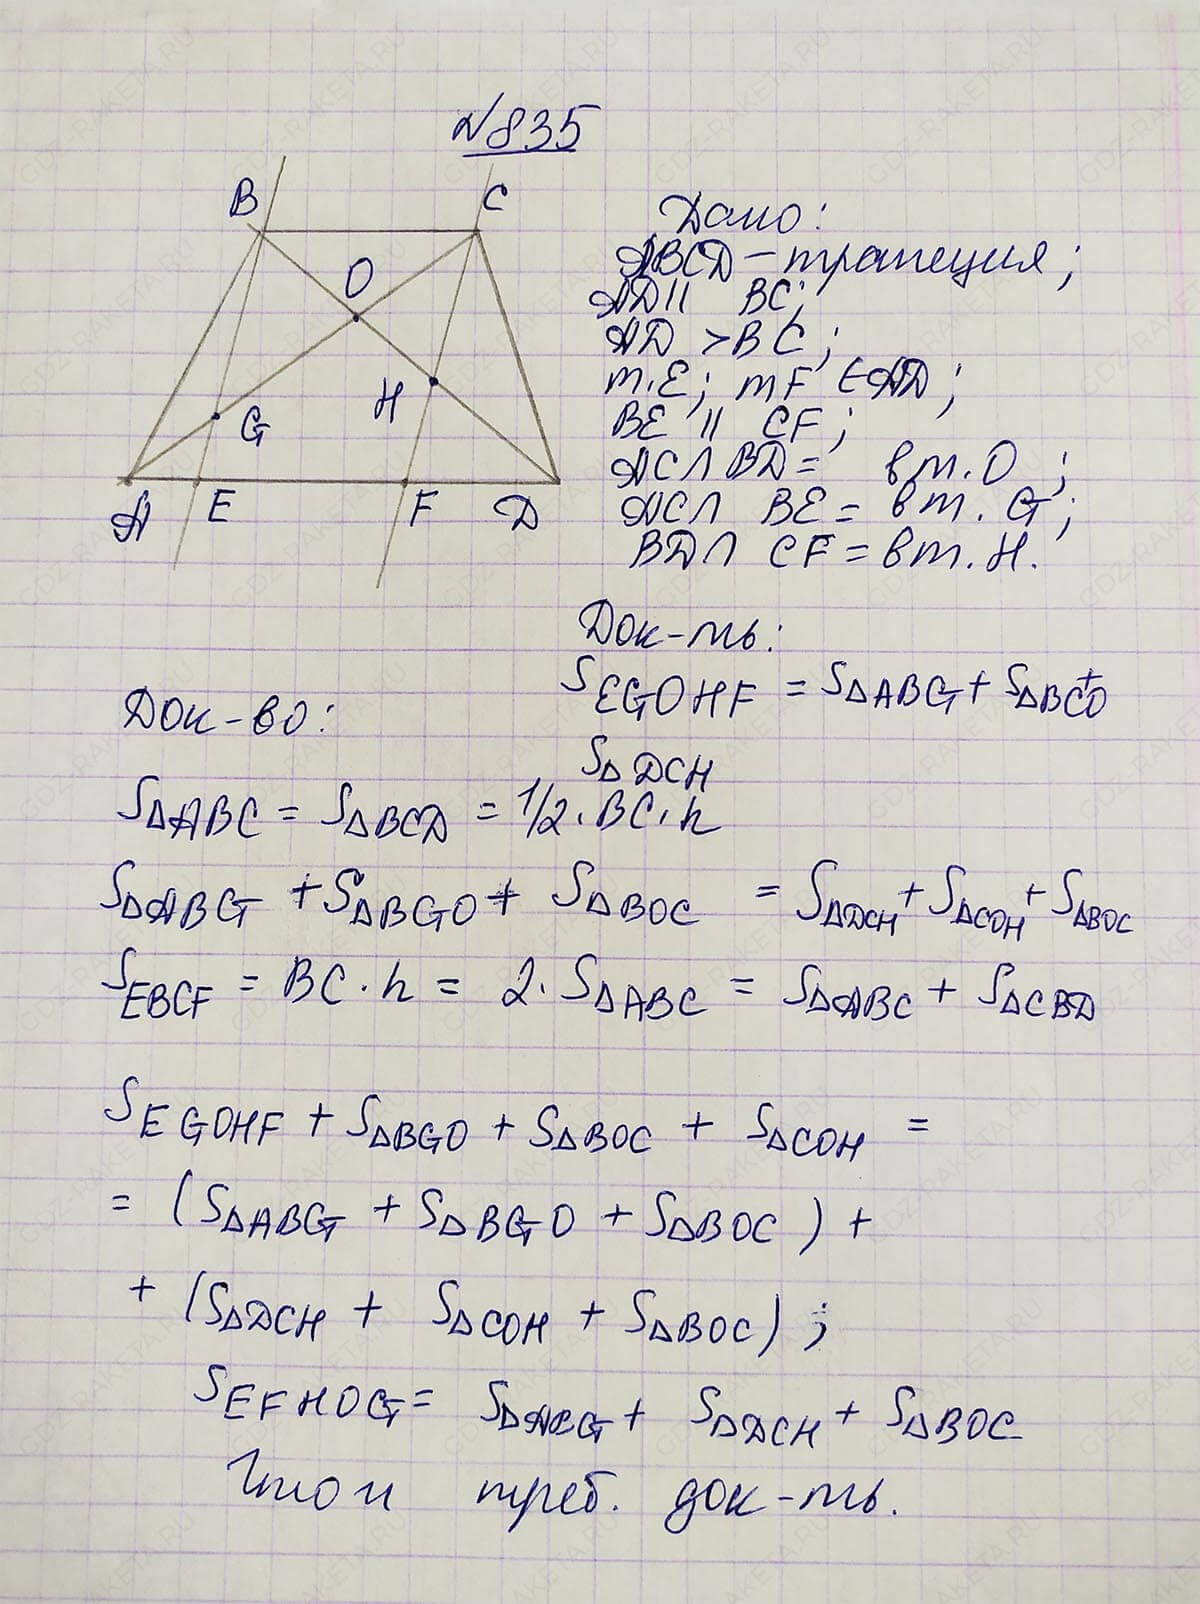 №835
B
C
O
H
G
A
E
F
D
Дано:
ABCD – трапеция;
AD || BC;
AD > BC;
т.E; тF ∈ AD;
BE || CF;
AC∩BD = в т.O;
AC∩ BE = в т. G;
BD∩ CF = в т. H.
Док-ть:
S EGOHF = S△ABG + S△BCO +
S△DCH
Док-во:
S△ABC = S△BCD = 1/2 · BC · h
S△ABG + S△BGO + S△BOC = S△DCH + S△COH + S△BOC
S EBCF = BC · h = 2 · S△ABC = S△ABC + S△CBD
S EGOHF + S△BGO + S△BOC + S△COH =
= (S△ABG + S△BGO + S△BOC) +
+ (S△DCH + S△COH + S△BOC);
S EFHOG = S△ABG + S△DCH + S△BOC
Что и треб. док-ть.
GDZ-RAKETA.RU